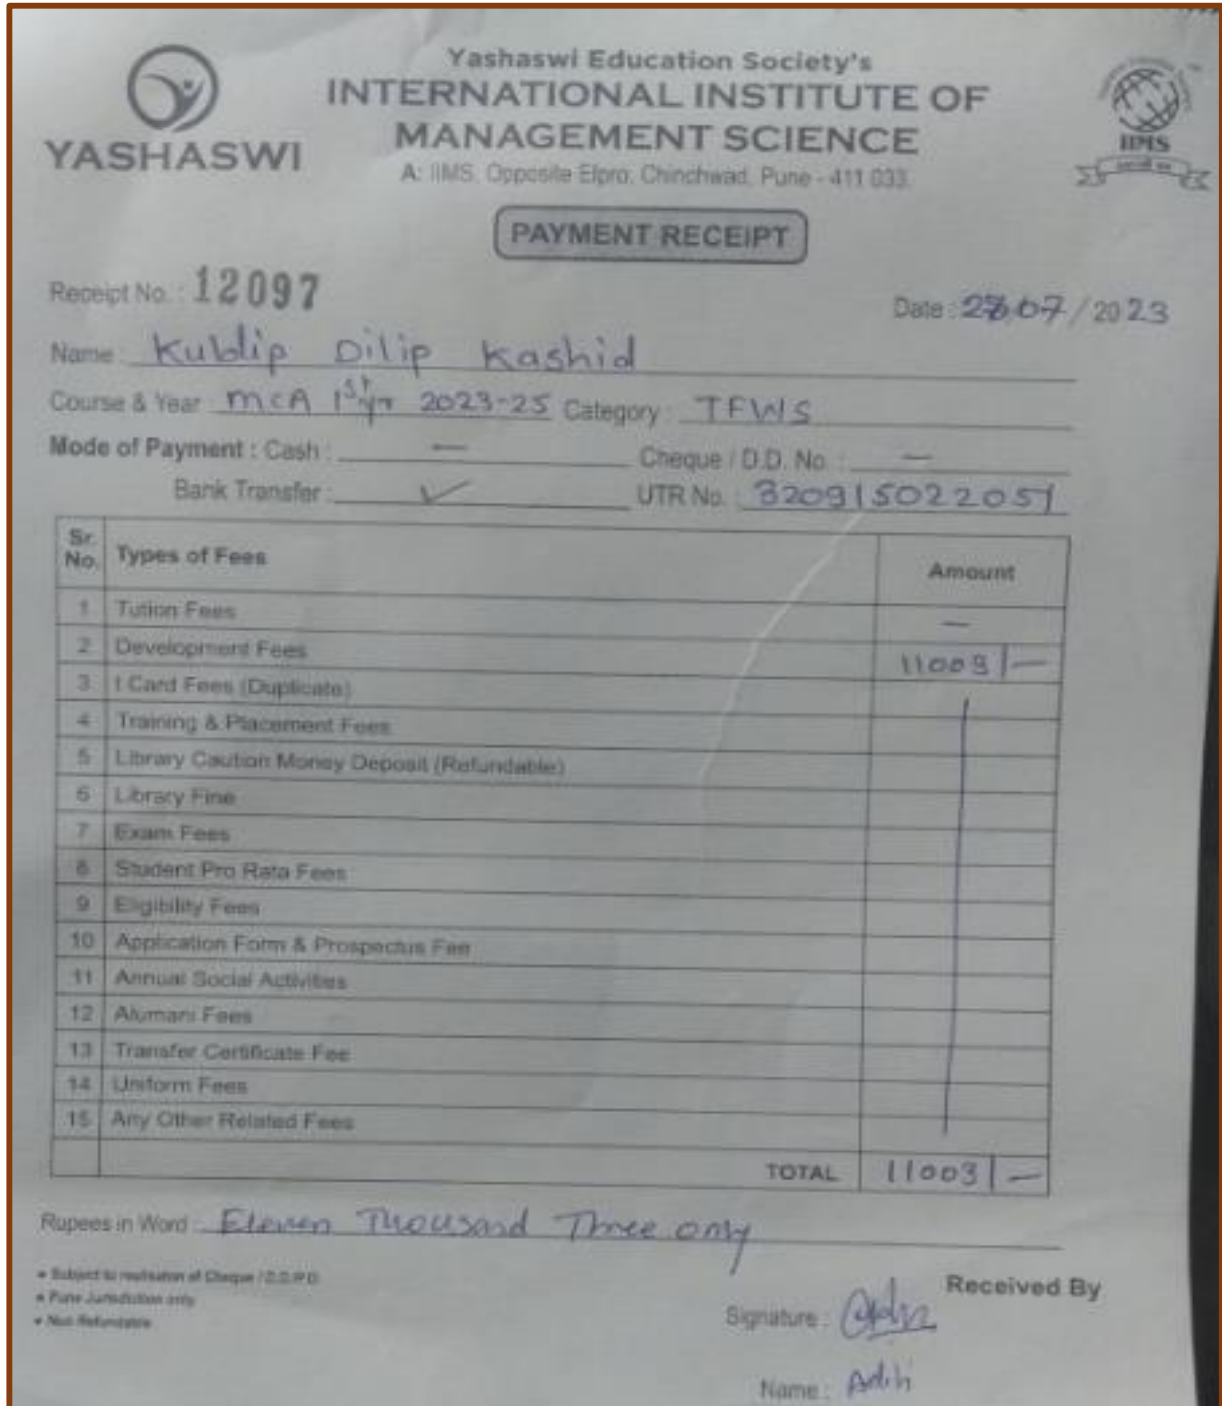 Yashaswi Education Society's
INTERNATIONAL INSTITUTE OF
MANAGEMENT SCIENCE
YASHASWI
IIMS
A: IIMS, Opposite Elpro, Chinchwad, Pune - 411 033.
PAYMENT RECEIPT
Receipt No. : 12097
Date : 28/07/2023
Name : Kuldip Dilip Kashid
Course & Year : MCA 1st yr 2023-25 Category : TFWS
Mode of Payment : Cash : — Cheque / D.D. No. : —
Bank Transfer : ✓ UTR No. : 320915022051
Sr. No. Types of Fees Amount
1 Tution Fees —
2 Development Fees 11003/—
3 I Card Fees (Duplicate)
4 Training & Placement Fees
5 Library Caution Money Deposit (Refundable)
6 Library Fine
7 Exam Fees
8 Student Pro Rata Fees
9 Eligibility Fees
10 Application Form & Prospectus Fee
11 Annual Social Activities
12 Alumani Fees
13 Transfer Certificate Fee
14 Uniform Fees
15 Any Other Related Fees
TOTAL 11003/—
Rupees in Word : Eleven Thousand Three only
• Subject to realisation of Cheque / D.D./P.O.
• Pune Jurisdiction only
• Non Refundable
Received By
Signature :
Name : Aditi